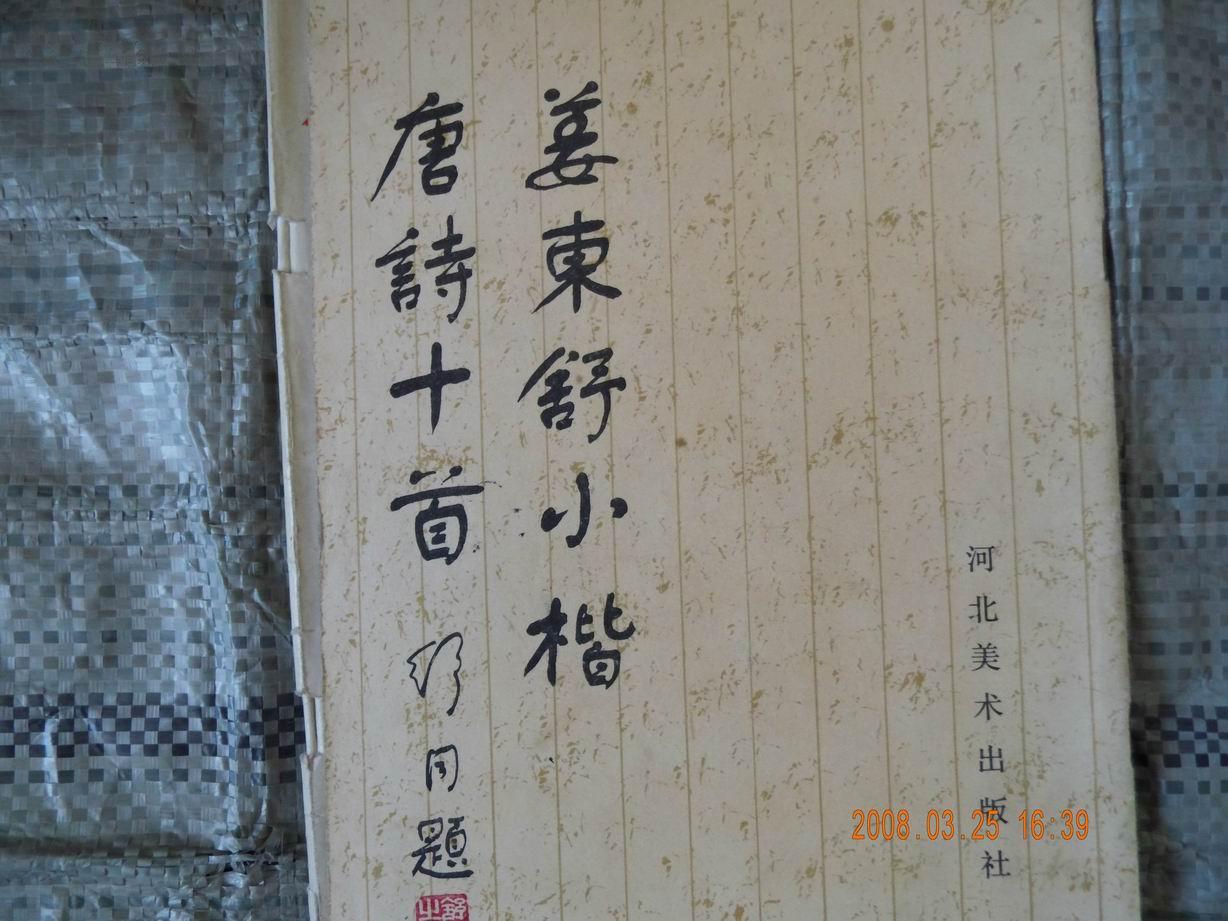 姜東舒小楷
唐詩十首
舒同題
河北美术出版社
2008.03.25 16:39